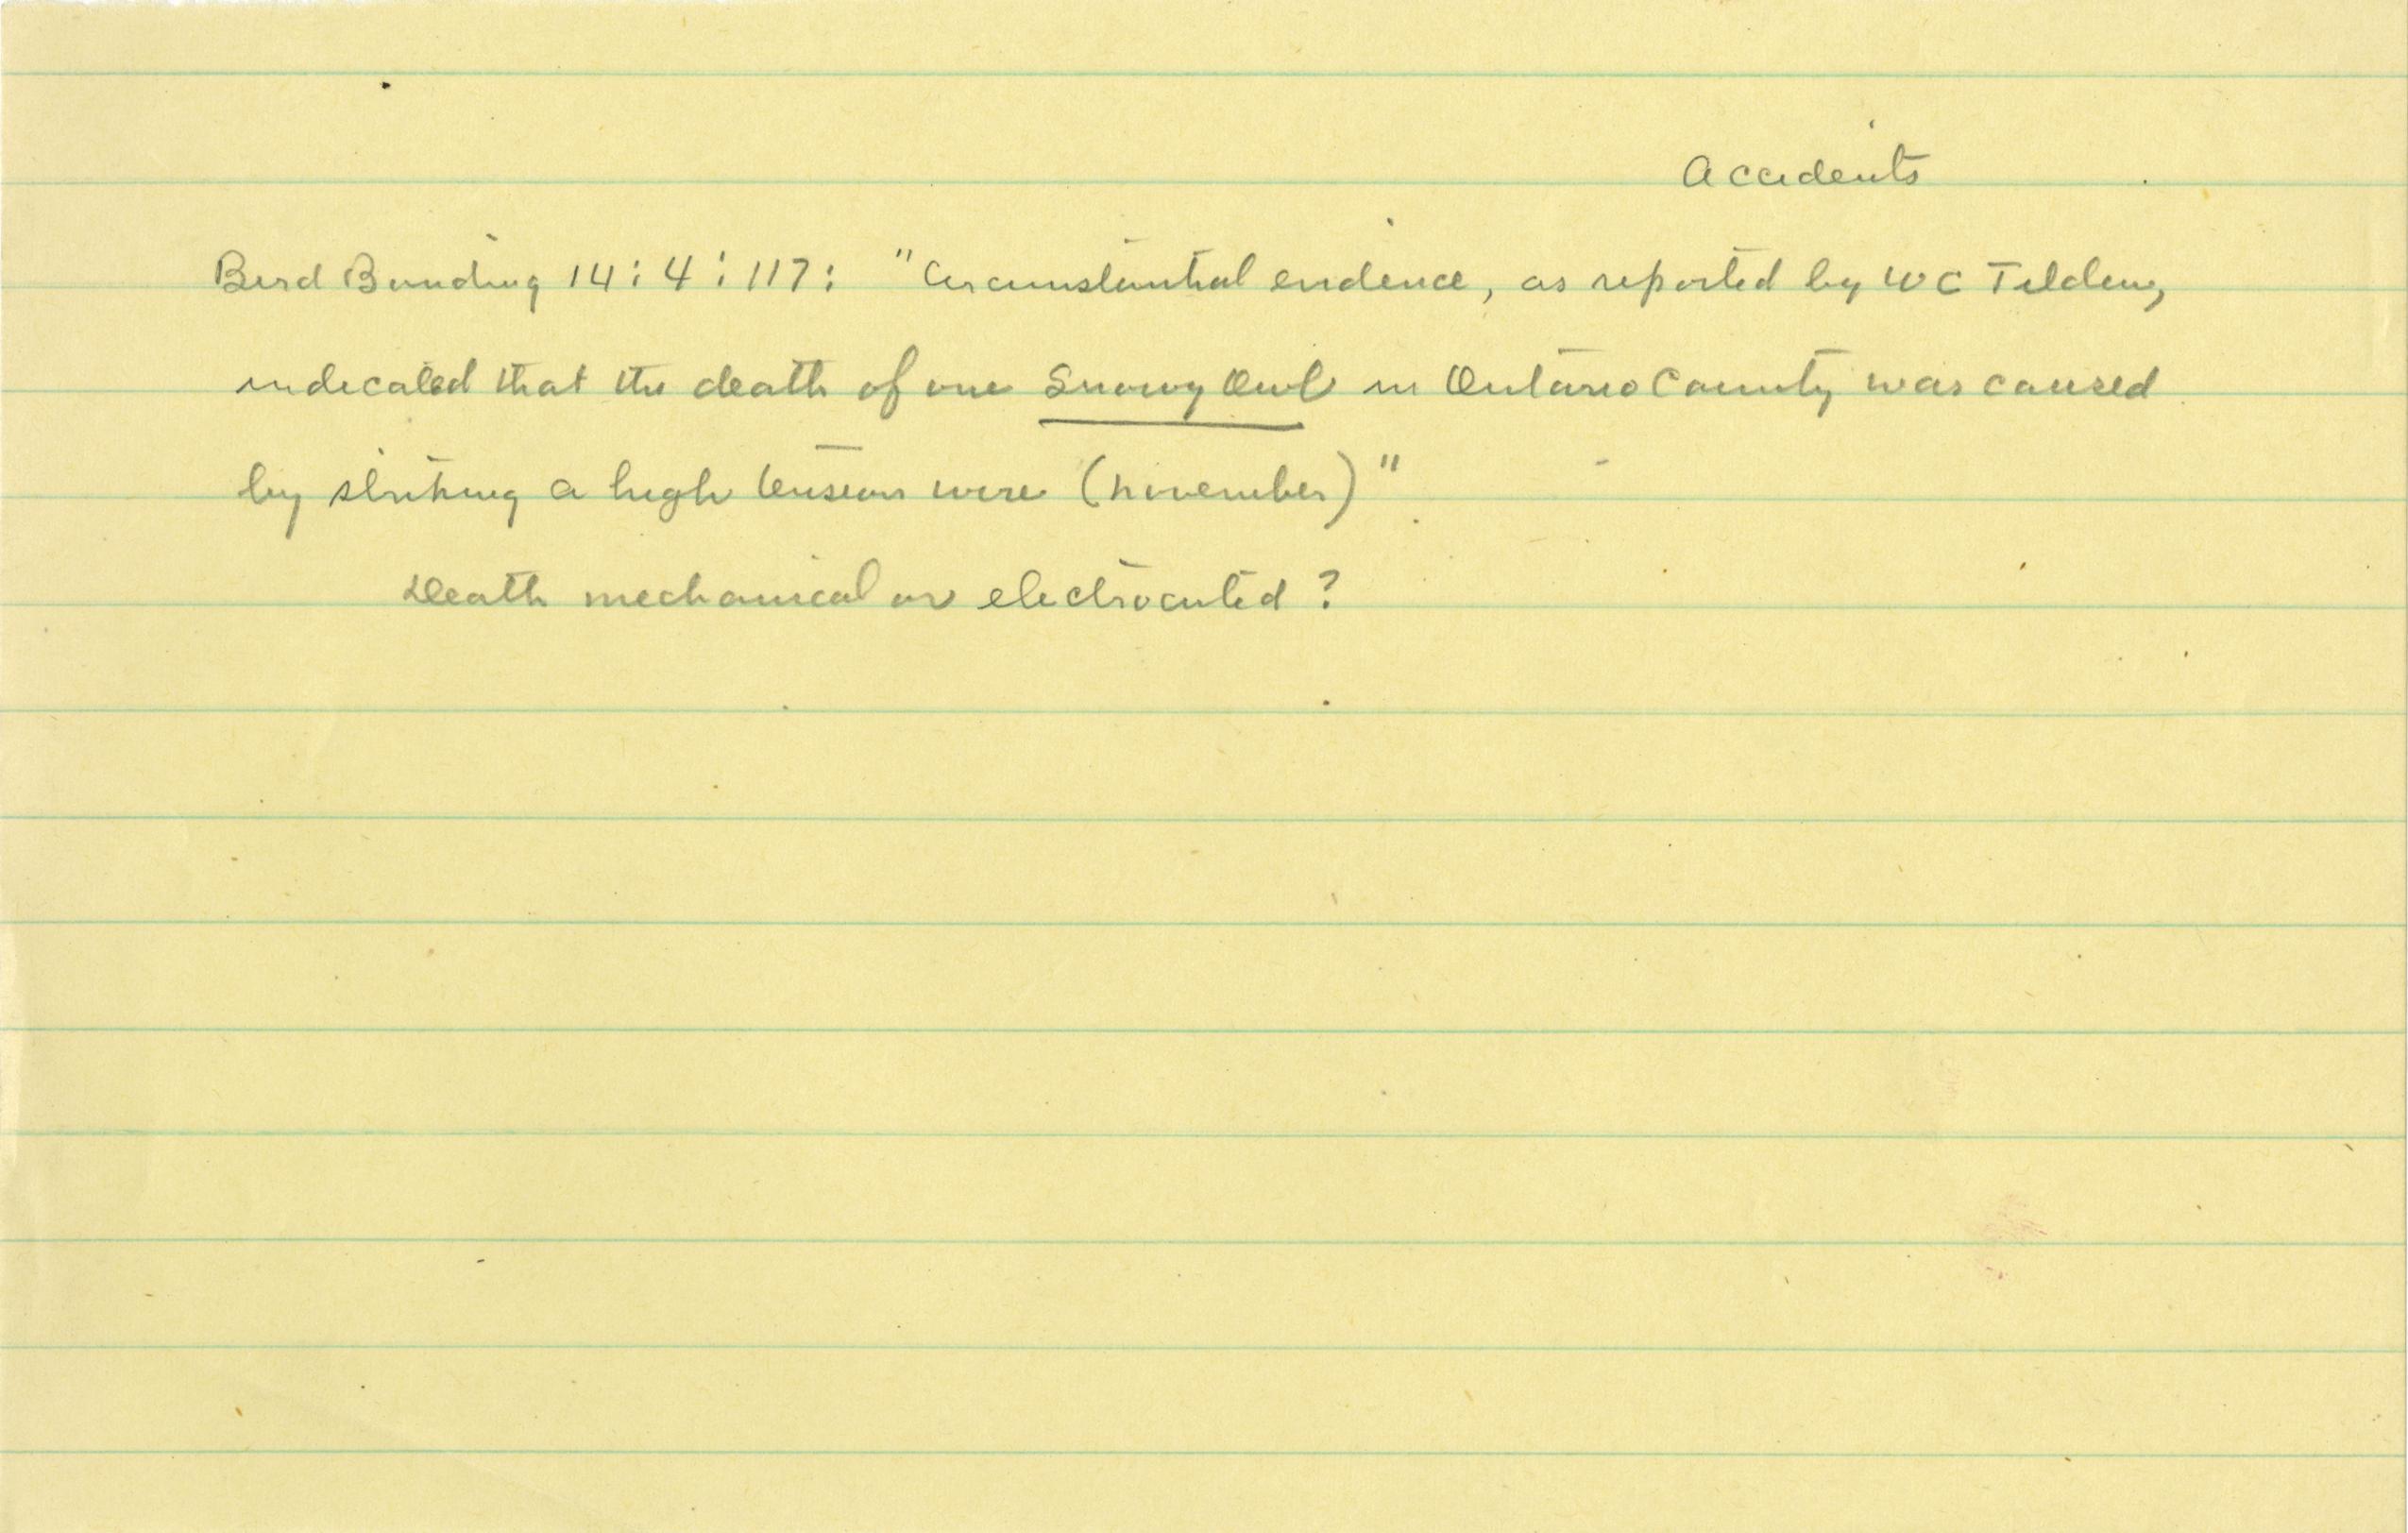 Accidents
Bird Banding 14:4:117: "Circumstantial evidence, as reported by WC Tilden,
indicated that the death of one Snowy Owl in Ontario County was caused
by striking a high tension wire (November)"
Death mechanical or electrocuted?